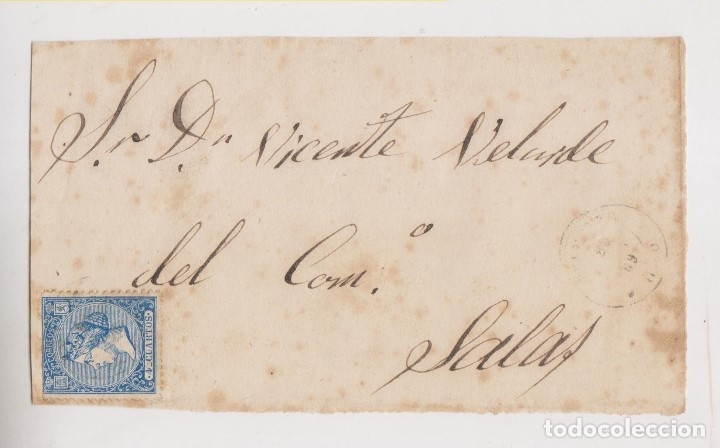 Sr Dn Vicente Velarde
del Com.º
Salas
CORREOS
4 CUARTOS
todocoleccion.net